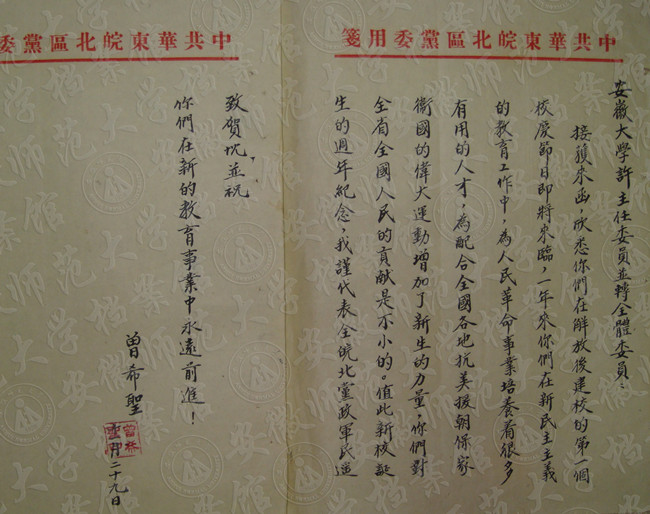 中共華東皖北區黨委用箋
安徽大學許主任委員並轉全體委員：
接獲來函，欣悉你們在解放後建校的第一個
校慶節日即將來臨，一年來你們在新民主主義
的教育工作中，為人民革命事業培養着很多
有用的人才，為配合全國各地抗美援朝保家
衛國的偉大運動增加了新生的力量，你們對
全省全國人民的貢献是不小的。值此新校誕
生的週年紀念，我謹代表全皖北黨政軍民遥
中共華東皖北區黨委
致賀忱並祝
你們在新的教育事業中永遠前進！
曾希聖
二十九日